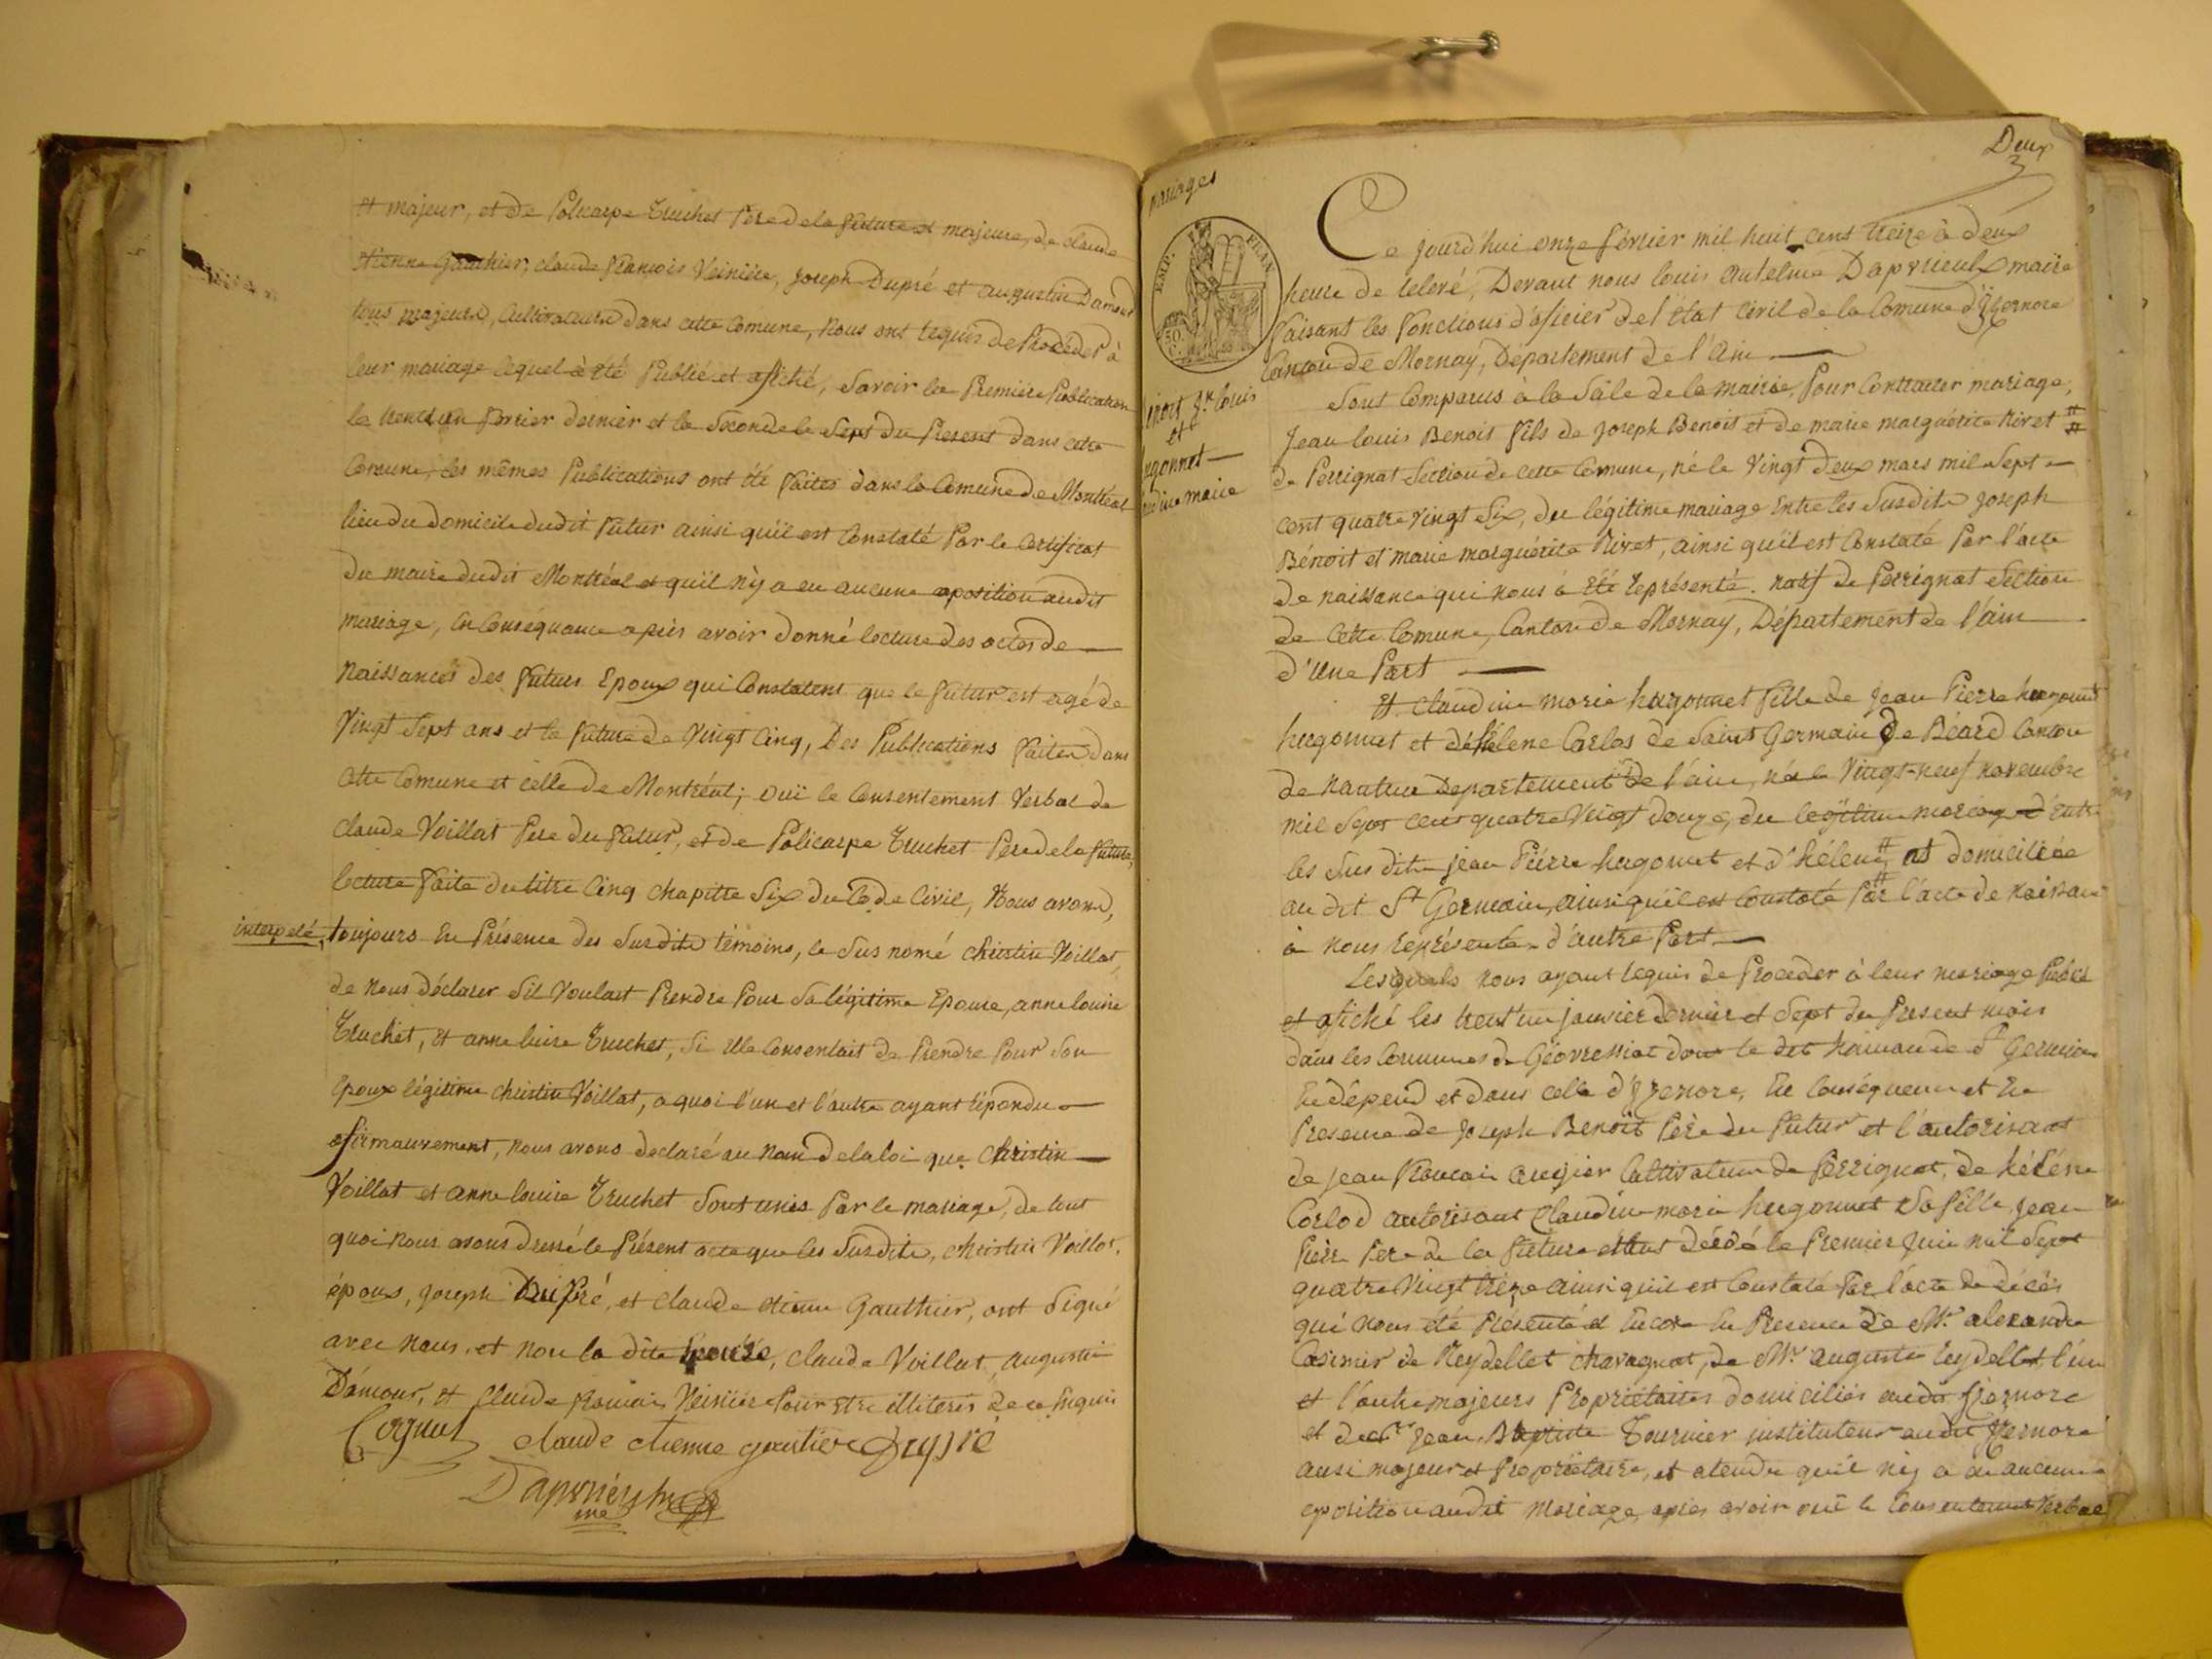 et majeur, et de Policarpe Truchet Pere de la Future et majeure, de claude
etienne Gauthier, claude François Veiniére, Joseph Dupré et augustin Damour
tous majeurs, Cultivateurs dans cette Comune, Nous ont requis de Procéder à
leur mariage lequel à été Publié et afiché, Savoir la Premiere Publication
le trente un Janvier dernier et la Seconde le Sept du Present dans cette
Comune, les mêmes Publications ont été Faites dans la Comune de Montréal
lieu du domicile dudit Futur ainsi qu'il est Constaté Par le Certificat
du maire dudit Montréal et quïl n'y a eu aucune oposition audit
mariage, En Conséquance après avoir donné lecture des actes de
Naissances des Futurs Epoux qui Constatent que le Futur est agé de
Vingt Sept ans et la Future de Vingt Cinq, Des Publications Faites dans
cette Comune et celle de Montréal; ouï le Consentement Verbal de
Claude Voillat Pere du Futur, et de Policarpe Truchet Pere de la Future,
lecture Faite du titre Cinq chapitre Six du Code Civil, Nous avons,
interpelé, toujours En Présence des Susdits témoins, le Sus nomé Christin Voillat,
de Nous déclarer Sil Voulait Prendre Pour Sa légitime Epouse, anne louise
Truchet, et anne luise Truchet, Si Elle Consentait de Prendre Pour Son
Epoux légitime Christin Voillat, a quoi l'un et l'autre ayant répondu
afirmativement, Nous avons declaré au Nom de la loi que Christin
Voillat et anne louise Truchet Sont unis Par le mariage, de tout
quoi Nous avons dressé le Présent acte que les Susdits, Christin Voillat,
épous, Joseph Dupré, et claude etienne Gauthier, ont Signé
avec Nous, et Non la dite Epouse, Claude Voillat, augustin
Damour, et Claude François Veiniére Pour Etre illiterés de ce Enquis
claude etienne gautier Dupré
Daprvieulx
me
Deux
mariages
EMP. FRAN.
50
C.
Benoit Jn louis
et
hugonnet
Claudine marie
Ce jourd'hui onze Février mil huit cent treize à deux
heure de relevé, Devant nous louis Antelme Daprvieulx maire
Faisant les Fonctions d'oficier de l'état Civil de la Comune d'Yzernore
Canton de Mornay, Département de l'Ain
Sont Comparus à la Sale de la mairie, Pour Contracter mariage,
Jean louis Benoit Fils de Joseph Benoit et de marie marguérite Nivet #
de Perrignat Section de cette Comune, né le Vingt deux mars mil Sept
cent quatre Vingt Six, du légitime mariage Entre les Susdits Joseph
Bénoit et marie marguérite Nivet, ainsi qu'il est Constaté Par l'acte
de naissance qui nous à été représenté. natif de Perrignat Section
de Cette Comune, Canton de Mornay, Département de l'ain
d'Une Part
Et Claudine marie hugonnet Fille de Jean Pierre hugonnet
hugonnet et de hélene Carlos de Saint Germain de Béard Canton
de nantua Departement de l'ain, née le Vingt-neuf novembre
mil Sept Cent quatre Vingt douze, du legitime mariage d'Entre
les Sus dits Jean Piérre hugonnet et d'hélene, et domiciliée
au dit St Germain, ainsi qu'il est Constaté Par l'acte de Naissance
à nous représenté d'autre Part
Lesquels nous ayant requis de Proceder à leur mariage Publié
et afiché les trent'un janvier dernier et Sept du Present mois
dans les Communes de Géovressiat dont le dit hameau de St Germain
En dépend et dans celle d'Yzernore, En Conséquence et En
Presence de Joseph Benoit Pére du Futur et l'autorisant
de Jean François Cultivateur de Perrignat, de héléne
Corlod autorisant Claudine marie hugonnet Sa Fille, Jean
Pierre Pere de la Future décédé le Premier Juin mil Sept
quatre Vingt treize ainsi quil est Constaté Par l'acte de décés
qui nous été Présenté et Encore En Presence de Mr. alexandre
Casimir de Reydellet Chavagnat, de Mr. augustin reydellet, l'un
et l'autre majeurs Propriétaires domiciliés audit Yzernore
et de Sr Jean Baptiste Tournier instituteur audit Yzernore
ausi majeur et Propriétaire, et atendu qu'il n'y a eu aucune
oposition audit Mariage, apres avoir ouï le Consentement Verbal